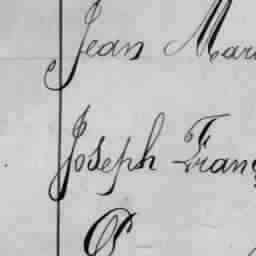 Jean Mari
Joseph Franç